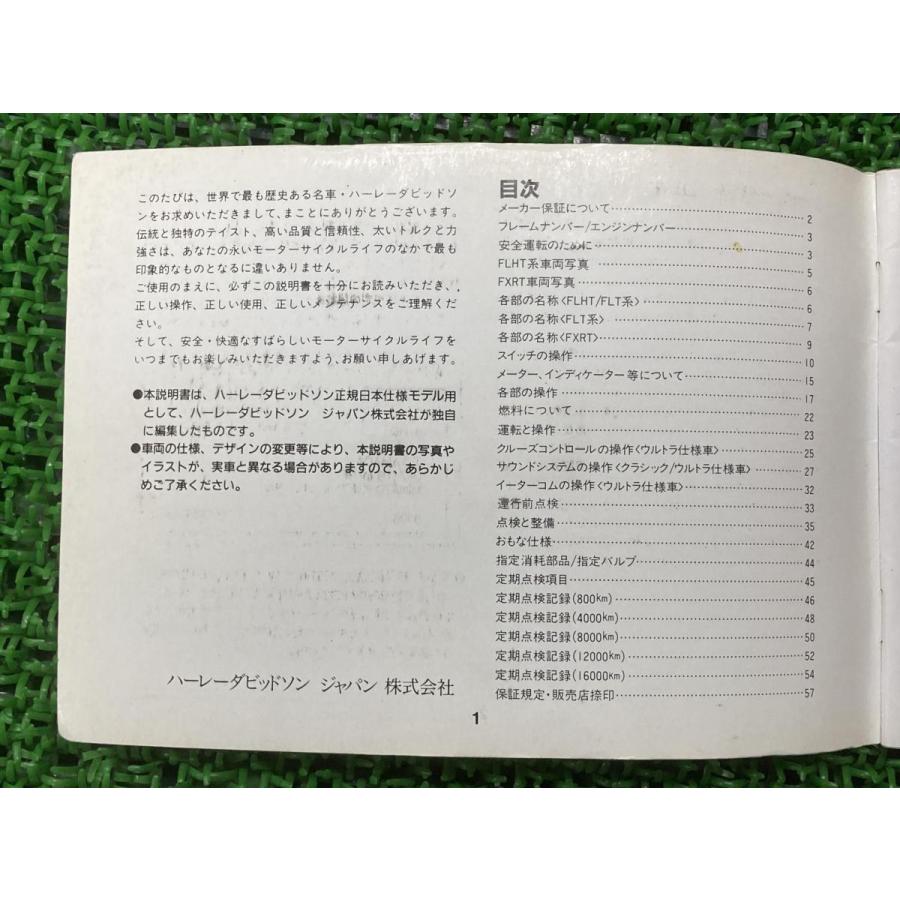 このたびは、世界で最も歴史ある名車・ハーレーダビッドソ
ンをお求めいただきまして、まことにありがとうございます。
伝統と独特のテイスト、高い品質と信頼性、太いトルクと力
強さは、あなたの永いモーターサイクルライフのなかで最も
印象的なものとなるに違いありません。
ご使用のまえに、必ずこの説明書を十分にお読みいただき、
正しい操作、正しい使用、正しいメンテナンスをご理解くだ
さい。
そして、安全・快適なすばらしいモーターサイクルライフを
いつまでもお楽しみいただきますよう、お願い申しあげます。
●本説明書は、ハーレーダビッドソン正規日本仕様モデル用
として、ハーレーダビッドソン ジャパン株式会社が独自
に編集したものです。
●車両の仕様、デザインの変更等により、本説明書の写真や
イラストが、実車と異なる場合がありますので、あらかじ
めご了承ください。
ハーレーダビッドソン ジャパン 株式会社
目次
メーカー保証について 2
フレームナンバー/エンジンナンバー 3
安全運転のために 3
FLHT系車両写真 5
FXRT車両写真 6
各部の名称〈FLHT/FLT系〉 6
各部の名称〈FLT系〉 7
各部の名称〈FXRT〉 9
スイッチの操作 10
メーター、インディケーター等について 15
各部の操作 17
燃料について 22
運転と操作 23
クルーズコントロールの操作〈ウルトラ仕様車〉 25
サウンドシステムの操作〈クラシック/ウルトラ仕様車〉 27
イーターコムの操作〈ウルトラ仕様車〉 32
運行前点検 33
点検と整備 35
おもな仕様 42
指定消耗部品/指定バルブ 44
定期点検項目 45
定期点検記録(800km) 46
定期点検記録(4000km) 48
定期点検記録(8000km) 50
定期点検記録(12000km) 52
定期点検記録(16000km) 54
保証規定・販売店捺印 57
1